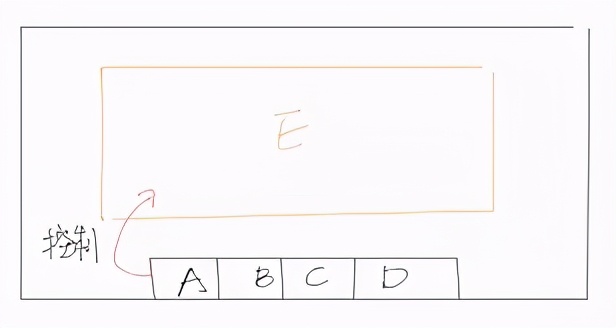 E
控制
A B C D